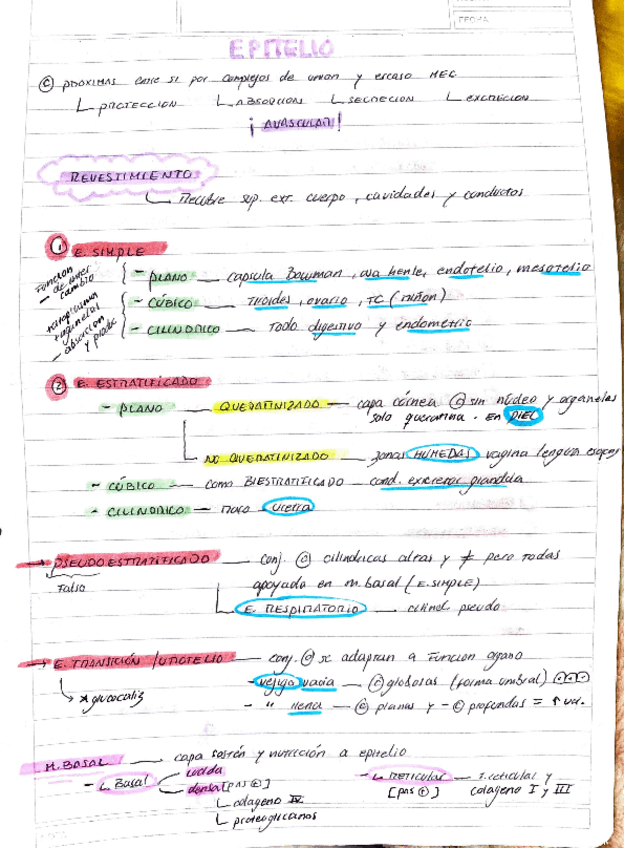 FECHA
EPITELIO
© PROXIMAS entre sí por complejos de unión y escaso MEC
PROTECCION ABSORCION SECRECION EXCRECION
¡AVASCULAR!
REVESTIMIENTO
Recubre sup. ext. cuerpo, cavidades y conductos
① E. SIMPLE
Funcion de inter cambio
- PLANO — capsula Bowman, asa henle, endotelio, mesotelio
- CÚBICO — Tiroides, ovario, TC (riñon)
absorcion y
- CILINDRICO — Todo digestivo y endometrio
② E. ESTRATIFICADO
- PLANO — QUERATINIZADO — capa córnea © sin núcleo y organelas
solo queratina. En PIEL
NO QUERATINIZADO — zonas HUMEDAS vagina lengua
- CÚBICO — como BIESTRATIFICADO — cond. excretor glandula
- CILINDRICO — raro uretra
→ PSEUDOESTRATIFICADO — conj. © cilindricas altas y ≠ pero todas
Falso
apoyada en m. basal (E. SIMPLE)
E. RESPIRATORIO — cilind. pseudo
→ E. TRANSICIÓN / UROTELIO — conj. © se adaptan a funcion organo
- vejiga vacia — © globosas (forma umbral)
* glucocaliz
- " llena — © planas y - © profundas = ↑ vol.
M. BASAL — capa sostén y nutrición a epitelio
- L. Basal lucida
densa [PAS +]
- L. RETICULAR — f. reticular y
[PAS +] colageno I y III
colageno IV
proteoglicanos